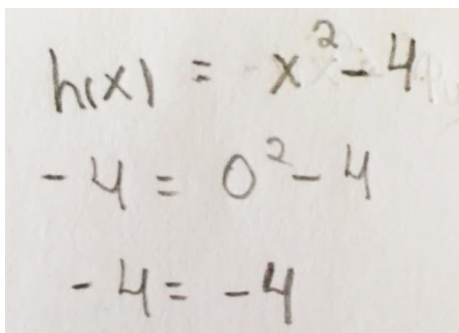 h(x) = x² - 4
- 4 = 0² - 4
- 4 = - 4